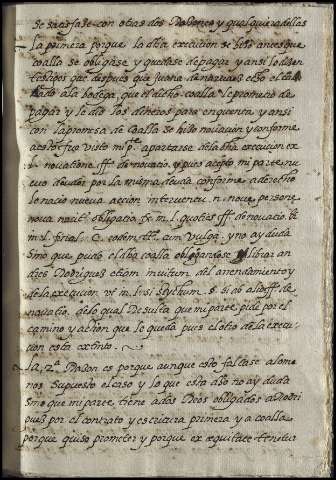 se satisfase con otras dos Raçones y qualquiera dellas
la primera porque la dha execucion se hiso antes que
Coalla se obligase y quedase de pagar y ansi lo disen
testigos que despues que Juana de narvaez
a la bodega, que el dicho coalla le prometio de
pagar y le dio los dineros para en quenta y ansi
con la promesa de Coalla se hiso novacion y conforme
a esto fue visto mi pte apartarse de la dha execucion ex
l. novatione ff. de novatio. y pues acepto mi parte nu
evo deudor por la misma deuda conforme a derecho
le nacio nueva action interventu n. nove persone
nova nascit obligatio tex in l. quoties ff. de novatio.
in l. C. eodem tto. cum vulga. y no ay duda
sino que pudo el dho coalla obligandose librar an
dres Rodrigues etiam invitum del arrendamiento y
de la execucion vt in l. si stychum §. si ab alio ff. de
novatio. de lo qual Resulta que mi parte pide por el
camino y action que le queda pues el otro de la execu
cion esta extinto.
la 2ª Raçon es porque aunque esto faltase a lo me
nos supuesto el caso y lo que esta dho no ay duda
sino que mi parte tiene a dos Reos obligados a Rodri
gues por el contrato y escritura primera y a coalla
porque quiso prometer y porque ex æquitate tenetur